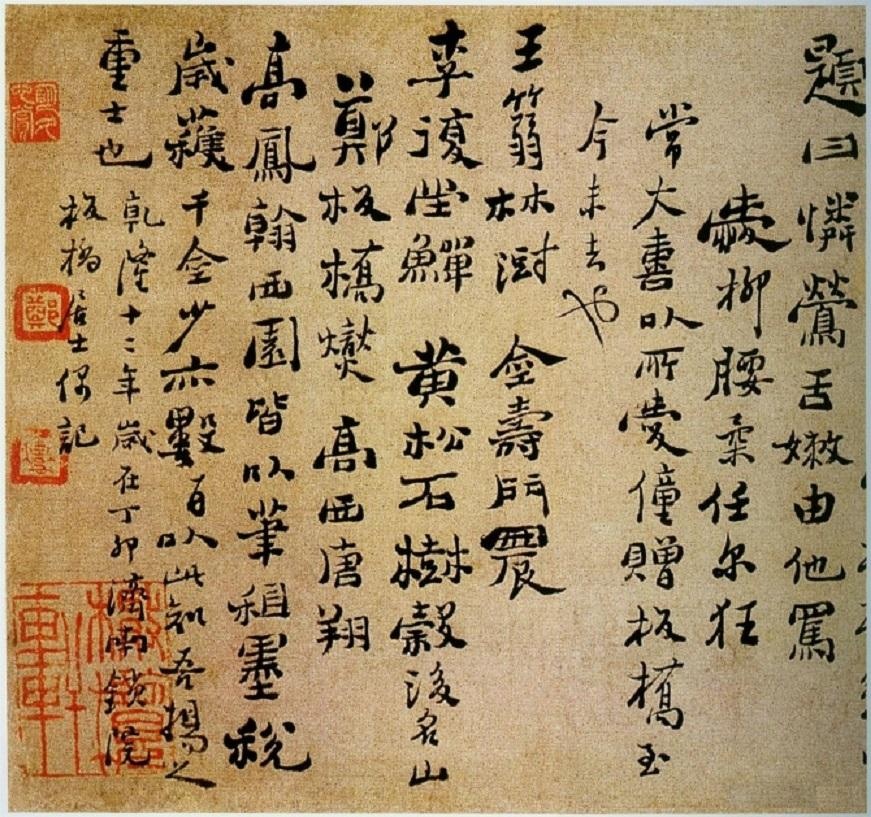 題曰憐鶯舌嫩由他罵
愛柳腰柔任尔狂
常大喜以所愛僮贈板橋至
今未去也
王篛林澍 金壽門農
李復堂鱓 黄松石樹穀後名山
鄭板橋燮 高西唐翔
高鳳翰西園皆以筆租墨稅
歲獲千金少亦數百以此知吾揚之
重士也 乾隆十二年歲在丁卯濟南鎖院
板橋居士偶記
鄭